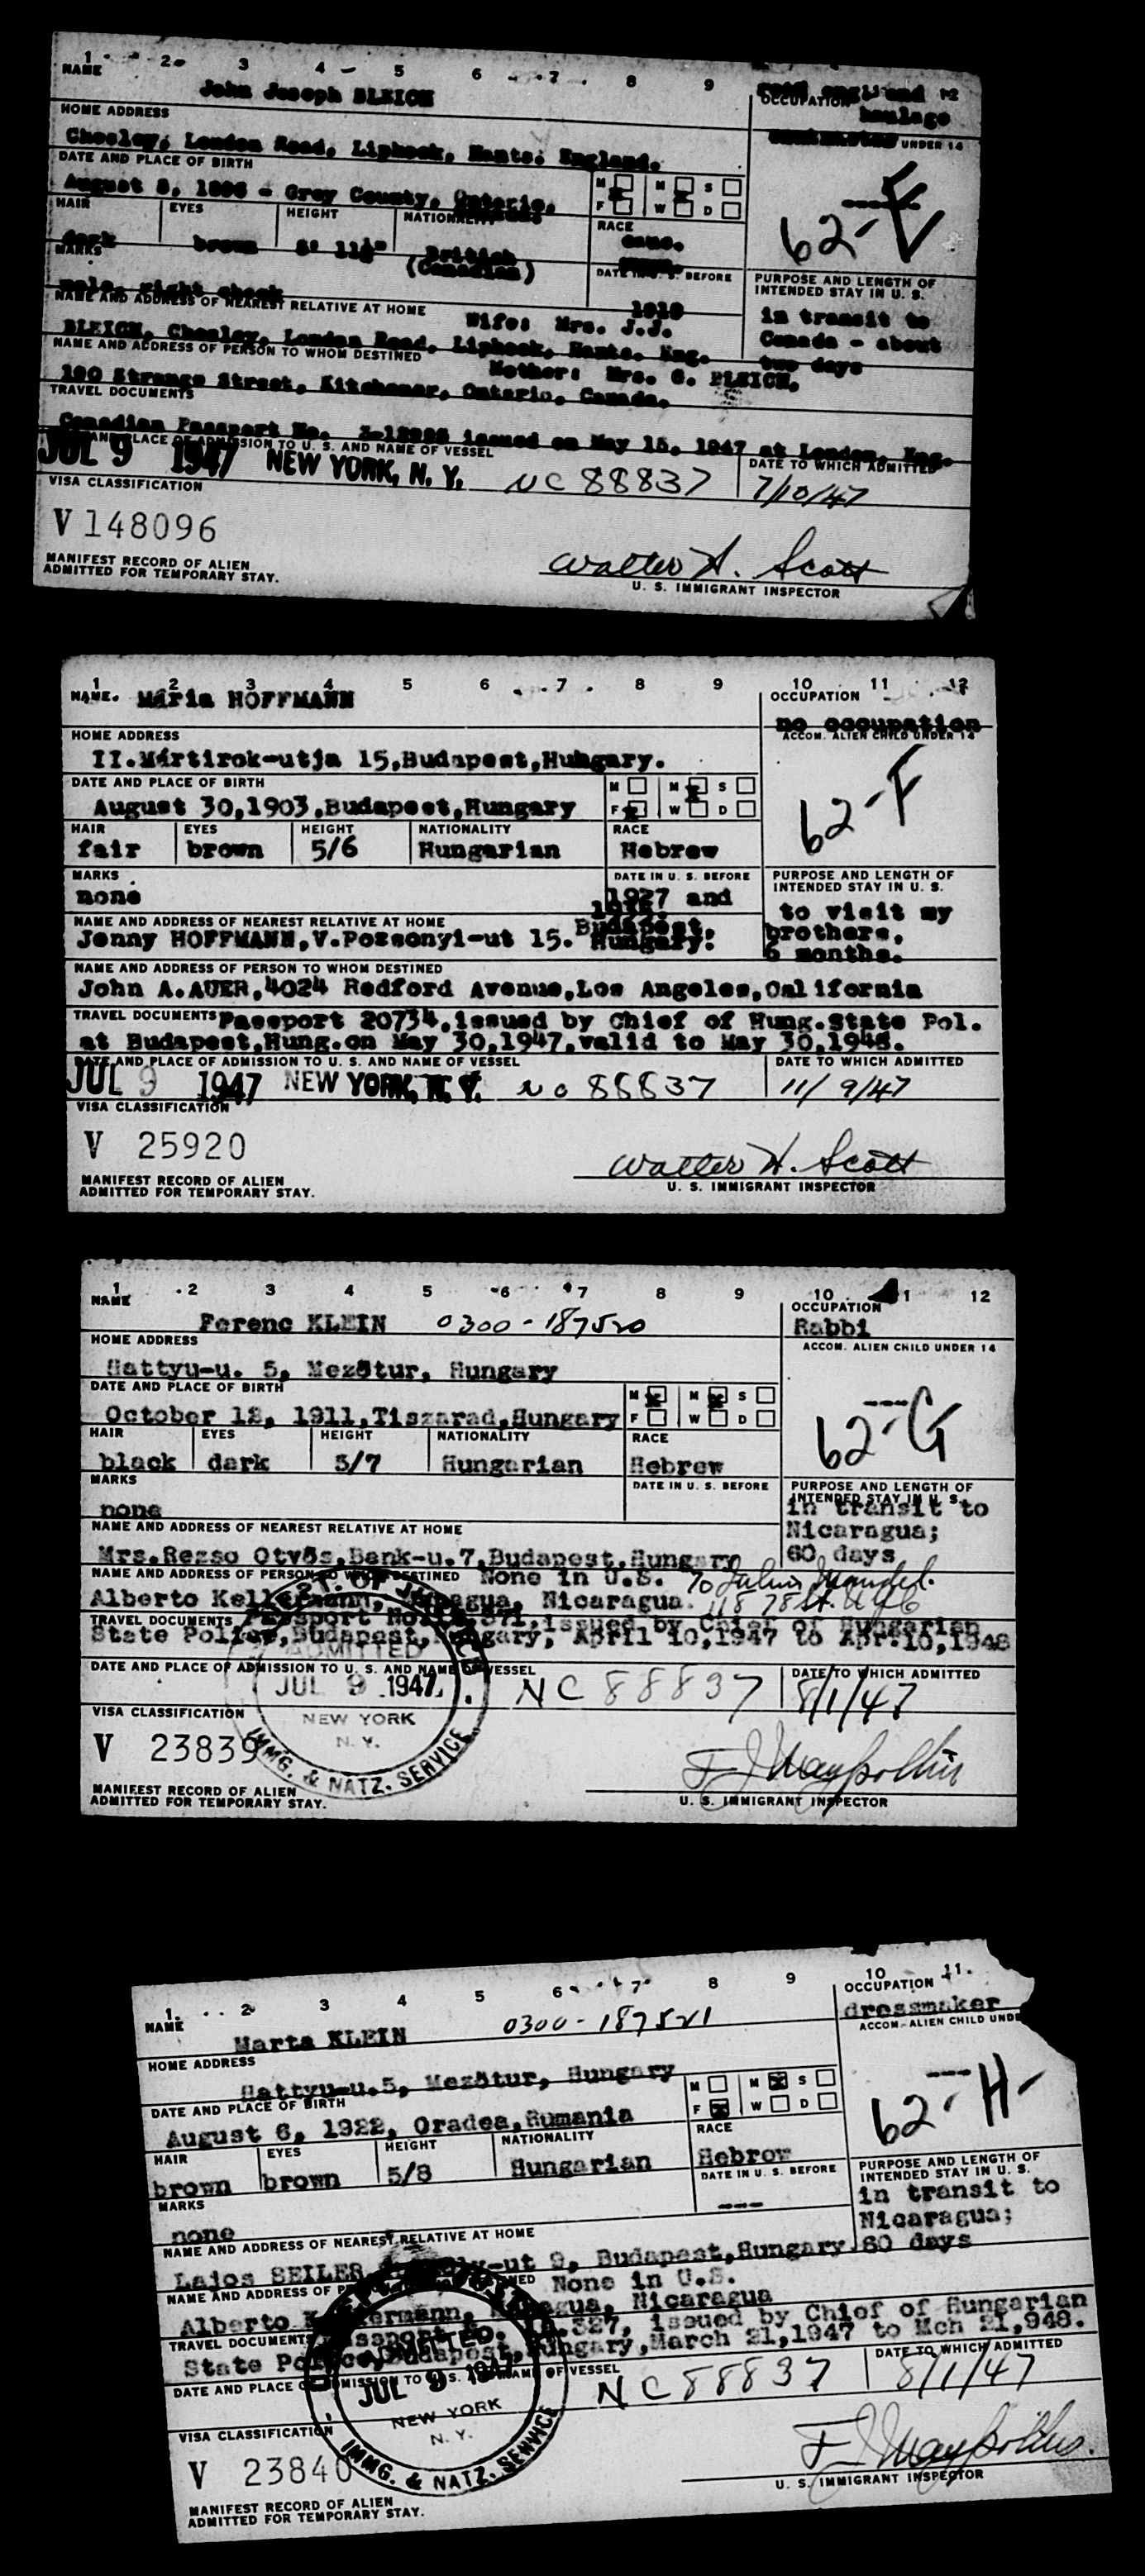 1 2 3 4 5 6 7 8 9 12
NAME John Joseph BLEICH
OCCUPATION haulage
HOME ADDRESS
UNDER 14
Chesley, London Road, Liphook, Hants. England.
DATE AND PLACE OF BIRTH
August 8, 1896 - Grey County, Ontario,
M M S
F W D
62-E
HAIR EYES HEIGHT NATIONALITY RACE
dark brown 5' 11½" British (Canadian)
cauc.
MARKS
mole, right cheek
DATE IN U. S. BEFORE
1919
PURPOSE AND LENGTH OF
INTENDED STAY IN U. S.
in transit to
Canada - about
two days
NAME AND ADDRESS OF NEAREST RELATIVE AT HOME Wife: Mrs. J.J.
BLEICH, Chesley, London Road, Liphook, Hants. Eng.
NAME AND ADDRESS OF PERSON TO WHOM DESTINED Mother: Mrs. G. BLEICH,
180 Strange Street, Kitchener, Ontario, Canada.
TRAVEL DOCUMENTS
Canadian Passport No. issued on May 15, 1947 at London, Eng.
PLACE OF ADMISSION TO U. S. AND NAME OF VESSEL DATE TO WHICH ADMITTED
JUL 9 1947 NEW YORK, N. Y. NC 88837 7/10/47
VISA CLASSIFICATION
V 148096
Walter H. Scott
MANIFEST RECORD OF ALIEN
ADMITTED FOR TEMPORARY STAY.
U. S. IMMIGRANT INSPECTOR
1 2 3 4 5 6 7 8 9 10 11 12
NAME. Mária HOFFMANN
OCCUPATION
no occupation
HOME ADDRESS
ACCOM. ALIEN CHILD UNDER 14
II.Mártirok-utja 15,Budapest,Hungary.
DATE AND PLACE OF BIRTH
August 30,1903,Budapest,Hungary
M M S
F W D
62-F
HAIR EYES HEIGHT NATIONALITY RACE
fair brown 5/6 Hungarian Hebrew
MARKS
none
DATE IN U. S. BEFORE
1927 and
PURPOSE AND LENGTH OF
INTENDED STAY IN U. S.
to visit my
brothers.
6 months.
NAME AND ADDRESS OF NEAREST RELATIVE AT HOME
Jenny HOFFMANN,V.Pozsonyi-ut 15. Budapest, Hungary.
NAME AND ADDRESS OF PERSON TO WHOM DESTINED
John A.AUER,4024 Redford Avenue,Los Angeles,California
TRAVEL DOCUMENTS Passport 20734,issued by Chief of Hung.State Pol.
at Budapest,Hung.on May 30,1947,valid to May 30,1948.
DATE AND PLACE OF ADMISSION TO U. S. AND NAME OF VESSEL DATE TO WHICH ADMITTED
JUL 9 1947 NEW YORK, N. Y. NC 88837 11/9/47
VISA CLASSIFICATION
V 25920
Walter H. Scott
MANIFEST RECORD OF ALIEN
ADMITTED FOR TEMPORARY STAY.
U. S. IMMIGRANT INSPECTOR
1 2 3 4 5 6 7 8 9 10 11 12
NAME Ferenc KLEIN 0300-187520
OCCUPATION
Rabbi
HOME ADDRESS
ACCOM. ALIEN CHILD UNDER 14
Hattyu-u. 5, Mezőtur, Hungary
DATE AND PLACE OF BIRTH
October 12, 1911,Tiszarad,Hungary
M M S
F W D
---
62-G
HAIR EYES HEIGHT NATIONALITY RACE
black dark 5/7 Hungarian Hebrew
MARKS
none
DATE IN U. S. BEFORE
PURPOSE AND LENGTH OF
INTENDED STAY IN U. S.
in transit to
Nicaragua;
60 days
NAME AND ADDRESS OF NEAREST RELATIVE AT HOME
Mrs.Rezso Otvös,Bank-u.7,Budapest,Hungary
NAME AND ADDRESS OF PERSON TO WHOM DESTINED None in U.S. To Julius Mandel.
Alberto Kellermann, Managua, Nicaragua. 118 78 St. NYC
TRAVEL DOCUMENTS Passport issued by Chief of Hungarian
State Police,Budapest,Hungary, April 10,1947 to Apr.10,1948
DATE AND PLACE OF ADMISSION TO U. S. AND NAME OF VESSEL DATE TO WHICH ADMITTED
ADMITTED
JUL 9 1947
NEW YORK
N. Y.
IMMG. & NATZ. SERVICE
NC 88837 8/1/47
VISA CLASSIFICATION
V 23839
MANIFEST RECORD OF ALIEN
ADMITTED FOR TEMPORARY STAY.
U. S. IMMIGRANT INSPECTOR
1 2 3 4 5 6 7 8 9 10 11
NAME Marta KLEIN 0300-187521
OCCUPATION
dressmaker
HOME ADDRESS
ACCOM. ALIEN CHILD UNDE
Hattyu-u.5, Mezőtur, Hungary
DATE AND PLACE OF BIRTH
August 6, 1922, Oradea,Rumania
M M S
F W D
---
62-H
HAIR EYES HEIGHT NATIONALITY RACE
brown brown 5/8 Hungarian Hebrew
MARKS
none
DATE IN U. S. BEFORE
---
PURPOSE AND LENGTH OF
INTENDED STAY IN U. S.
in transit to
Nicaragua;
60 days
NAME AND ADDRESS OF NEAREST RELATIVE AT HOME
Lajos SEILER, -ut 9, Budapest,Hungary
NAME AND ADDRESS OF None in U.S.
Alberto Kellermann, Managua, Nicaragua
TRAVEL DOCUMENTS Passport issued by Chief of Hungarian
State Police,Budapest,Hungary,March 21,1947 to Mch 21,948.
DATE AND PLACE OF ADMISSION TO U. S. AND NAME OF VESSEL DATE TO WHICH ADMITTED
ADMITTED
JUL 9 1947
NEW YORK
N. Y.
IMMG. & NATZ. SERVICE
NC 88837 8/1/47
VISA CLASSIFICATION
V 23840
MANIFEST RECORD OF ALIEN
ADMITTED FOR TEMPORARY STAY.
U. S. IMMIGRANT INSPECTOR